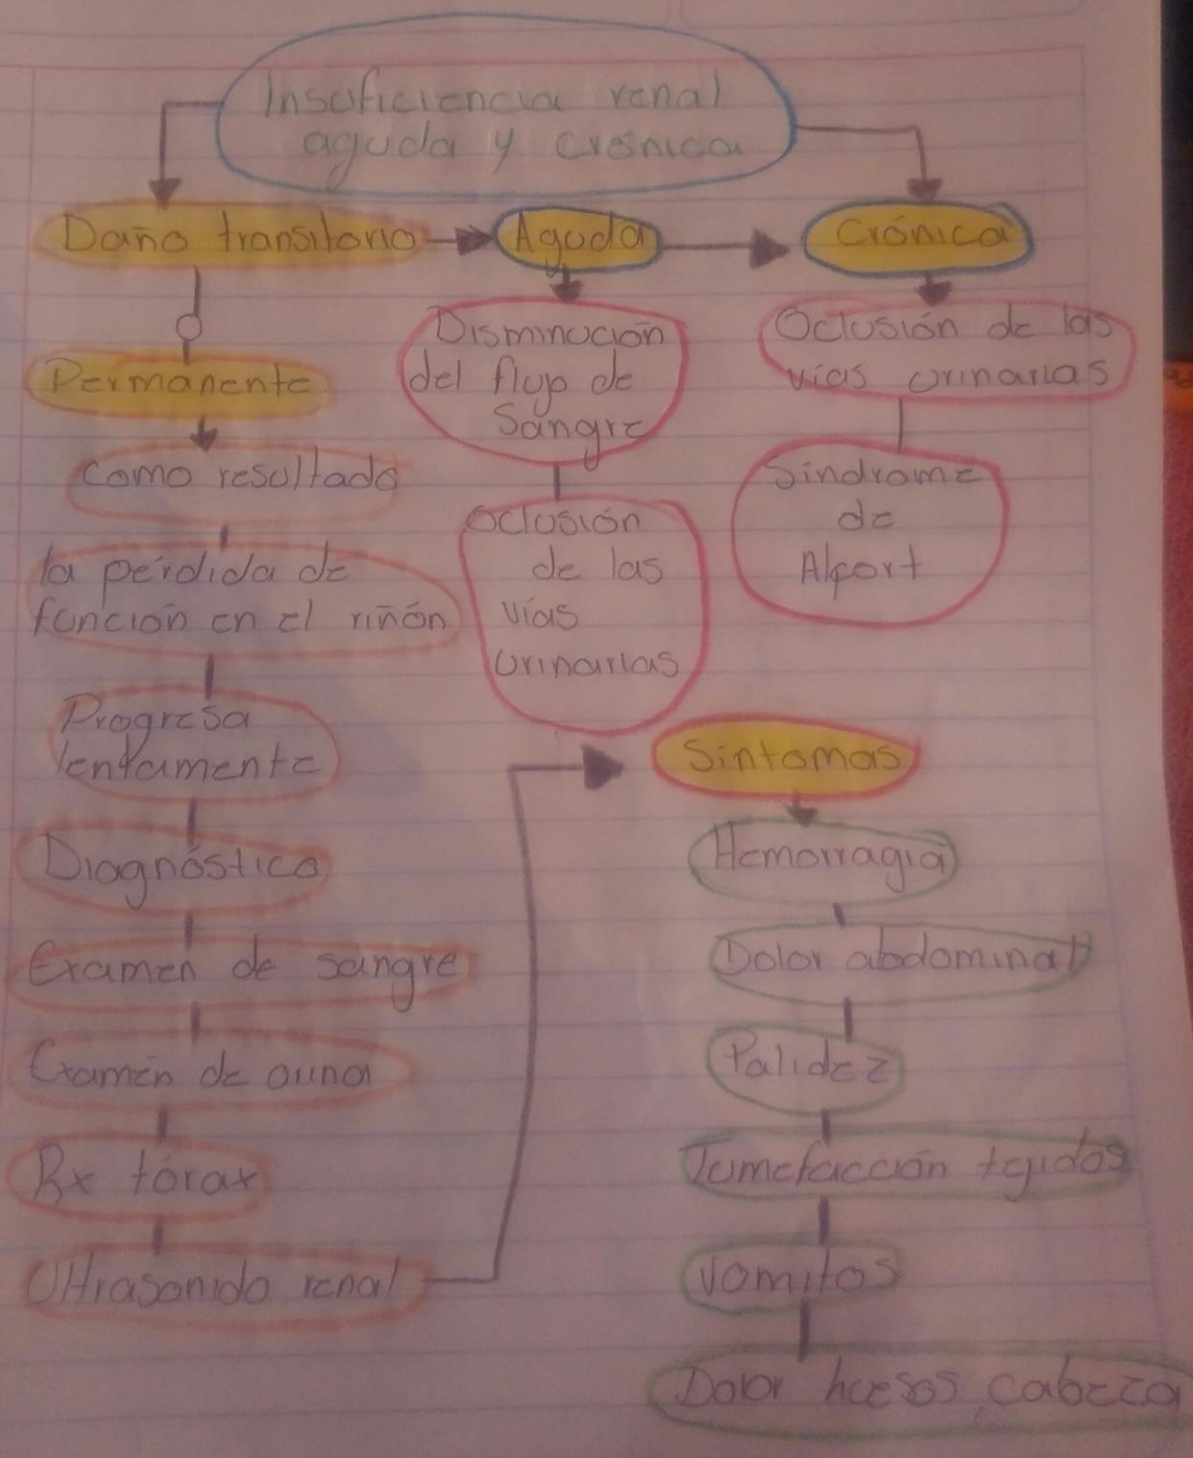 Insuficiencia renal
aguda y crónica
Daño transitorio
Aguda
Crónica
Permanente
Como resultado
la pérdida de
función en el riñón
Progresa
lentamente
Diagnóstico
Examen de sangre
Examen de orina
Rx tórax
Ultrasonido renal
Disminución
del flujo de
Sangre
Oclusión
de las
vías
urinarias
Oclusión de las
vías urinarias
Sindrome
de
Alport
Sintomas
Hemorragia
Dolor abdominal
Palidez
Tumefacción tejidos
Vomitos
Dolor huesos, cabeza